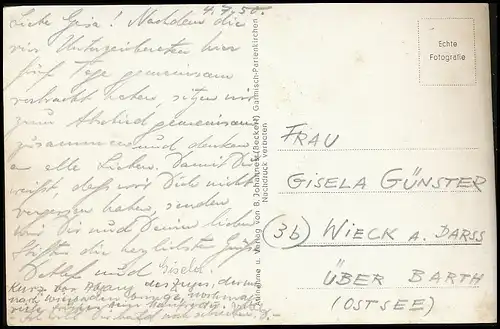 4.7.50.
Liebe Gisa! Nachdem die
vier Unterzeichneten hier
fünf Tage gemeinsam
verbracht haben, sitzen wir
zum Abschied gemeinsam
zusammen und denken
an alle Lieben. Damit Du
weißt daß wir Dich nicht
vergessen haben, senden
wir Dir und Deinen lieben
die herzlichsten Grüße
Detlef und Gisela.
Kurz vor Abgang des Zuges, der uns
nach Wiesbaden bringt, nochmals
viele
Aufnahme u. Verlag von B. Johannes (Beckert) Garmisch-Partenkirchen
Nachdruck verboten
Echte
Fotografie
FRAU
GISELA GÜNSTER
(3b) WIECK A. DARSS
ÜBER BARTH
(OSTSEE)